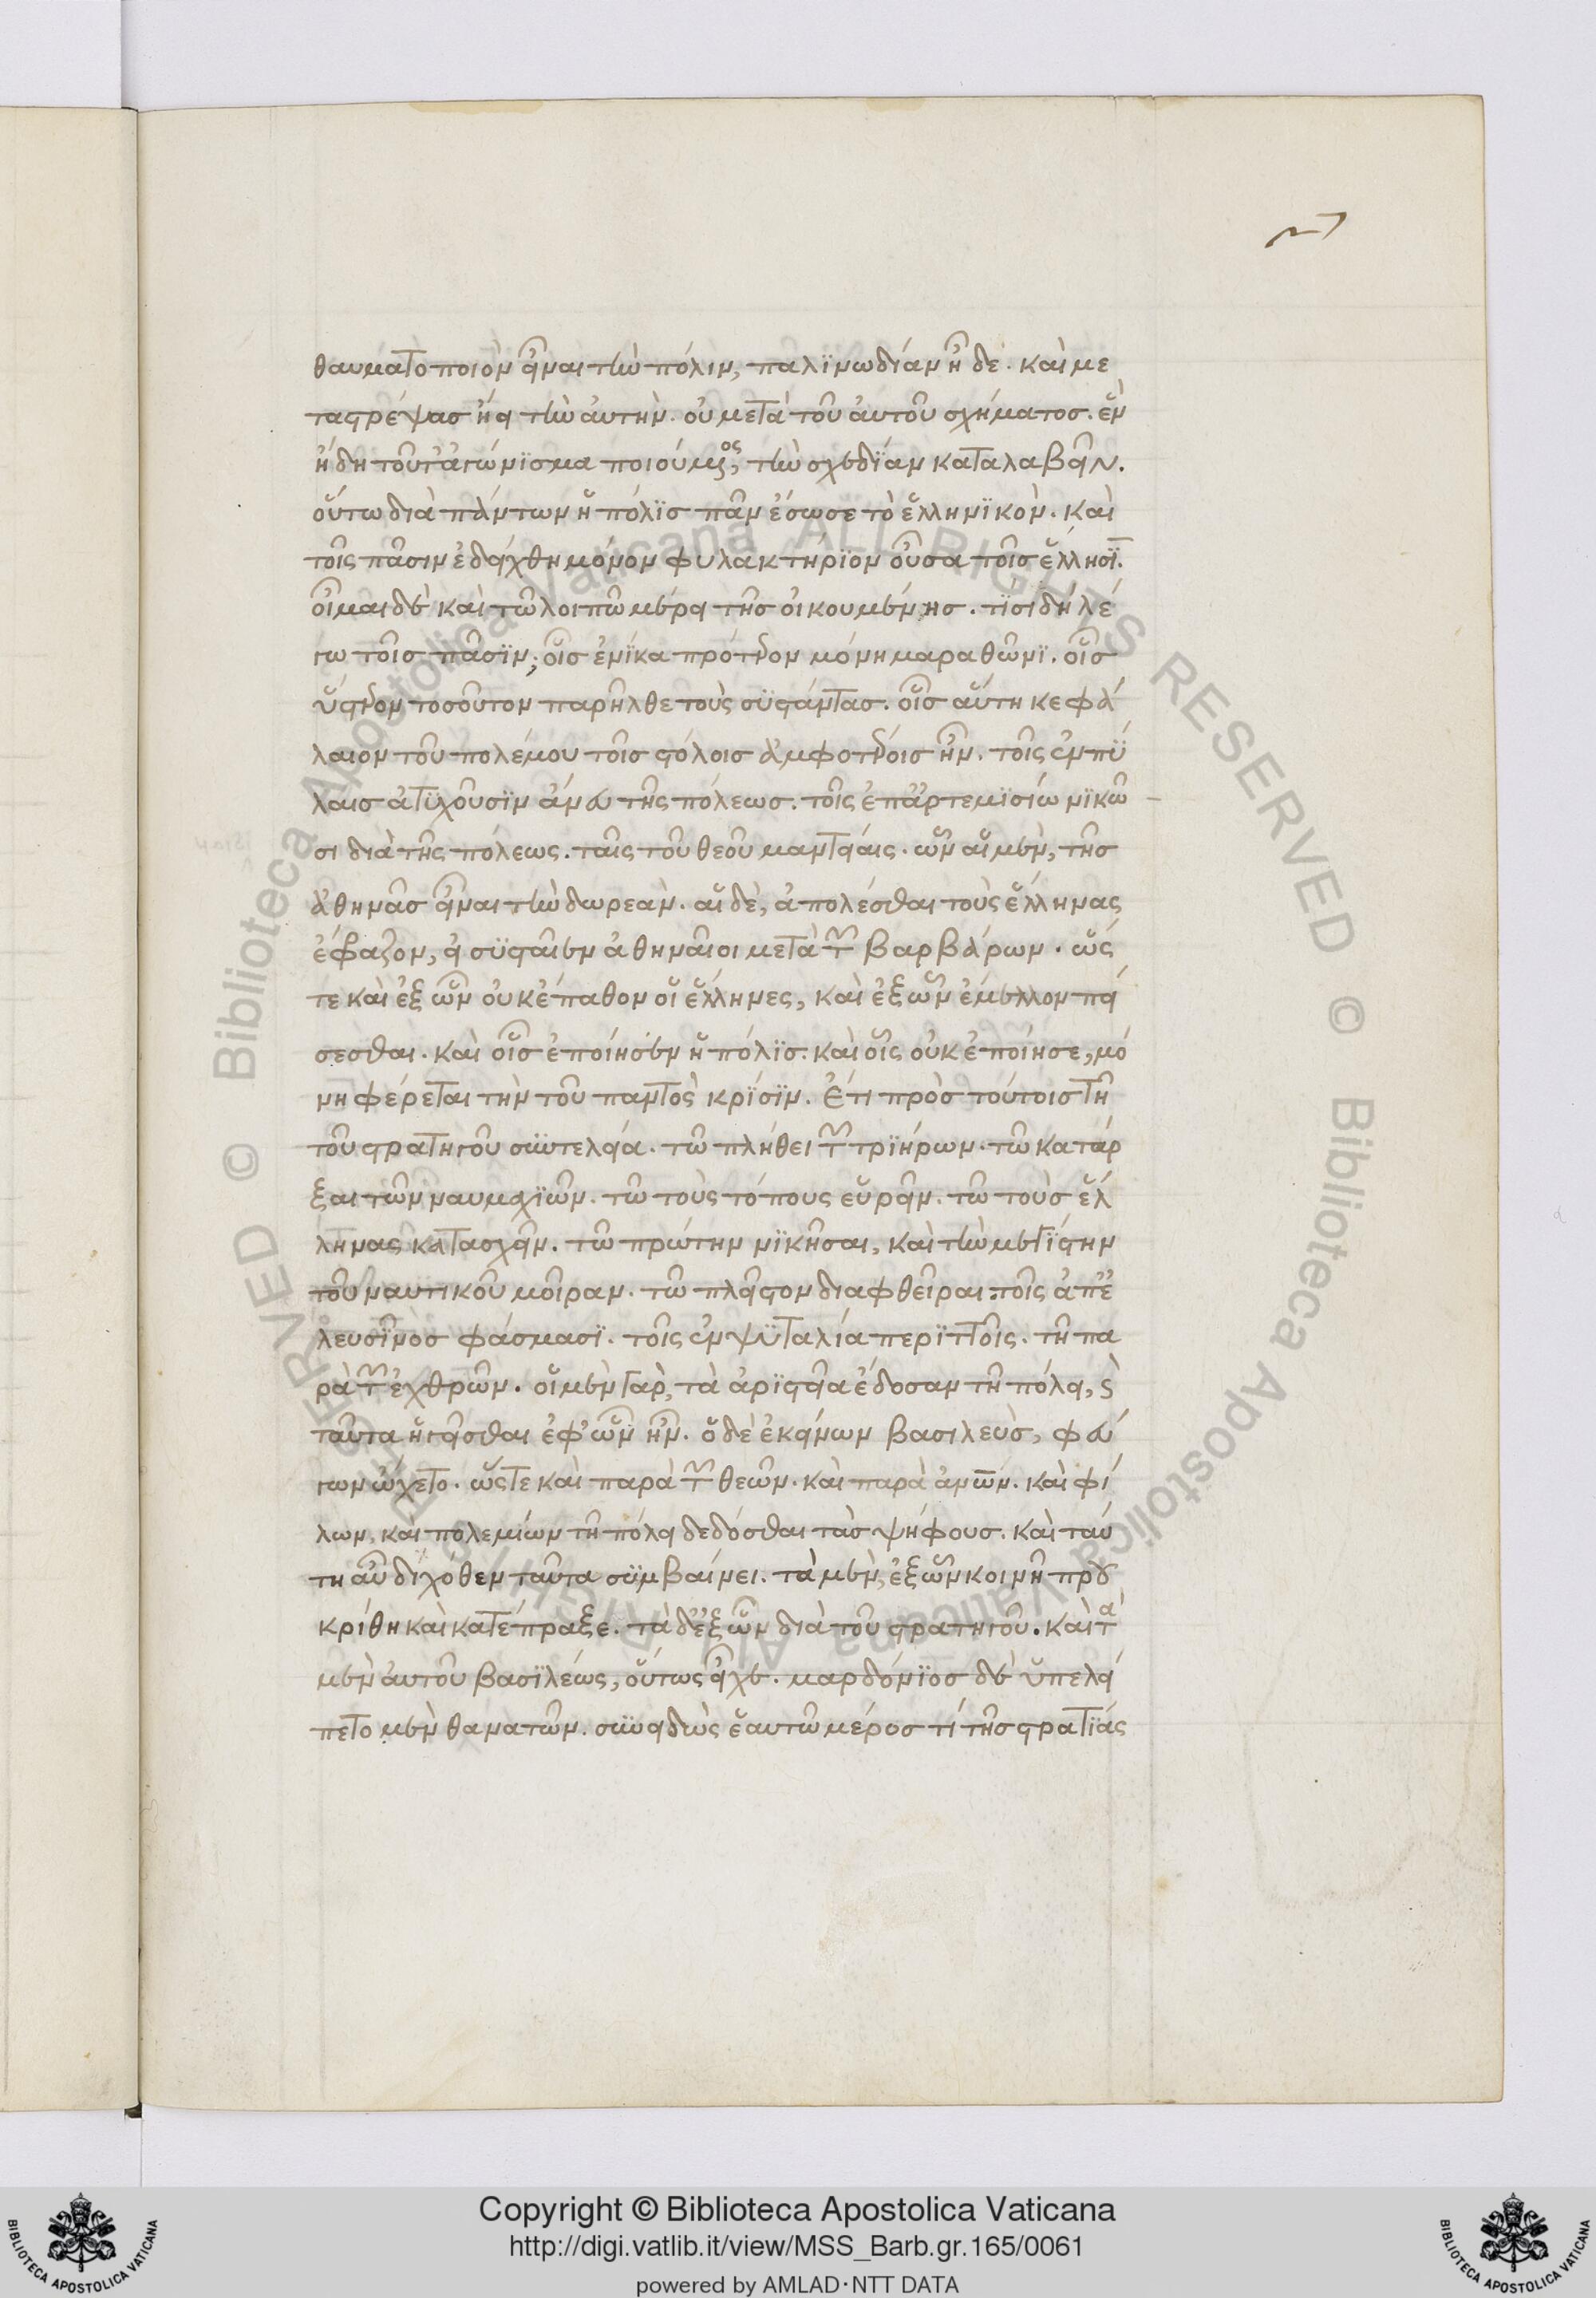 θαυματοποιὸν εἶναι τὴν πόλιν, παλϊνωδίαν ἦδε. καὶ με
ταστρέψασ ἤει τὴν ἀυτὴν. οὐ μετὰ τοῦ ἀυτοῦ σχήματοσ. ἓν
ἤδη τοῦτ' ἀγώνϊσμα ποιούμενος, τὴν σχεδΐαν καταλαβεῖν.
οὕτω διὰ πάντων ἡ πόλϊσ πᾶν ἔσωσε τὸ ἑλληνϊκὸν. καὶ
τοῖς πᾶσιν ἐδείχθη μόνον φυλακτήρϊον οὖσα τοῖσ ἕλλησϊ.
οἶμαι δὲ καὶ τῶ λοιπῶ μέρει τῆσ οἰκουμένησ. τΐσι δὴ λέ
γω τοῖσ πᾶσϊν; οἷσ ἐνΐκα πρότερον μόνη μαραθῶνϊ. οἷσ
ὕστερον τοσοῦτον παρῆλθε τοὺς συστάντασ. οἷσ αὕτη κεφά
λαιον τοῦ πολέμου τοῖσ στόλοισ ἀμφοτέροισ ἦν. τοῖς ἐν πύ
λαισ ἀτϋχοῦσϊν ἄνευ τῆς πόλεωσ. τοῖς ἐπ' ἀρτεμϊσίω νϊκῶ
σι διὰ τῆς πόλεως. ταῖς τοῦ θεοῦ μαντείαις. ὧν αἱ μὲν, τῆσ
ἀθηνᾶσ εἶναι τὴν δωρεὰν. αἱ δὲ, ἀπολέσθαι τοὺς ἕλληνας
ἔφαζον, εἰ σϋσταῖεν ἀθηναῖοι μετὰ τῶν βαρβάρων. ὥς
τε καὶ ἐξ ὧν οὐκ ἔπαθον οἱ ἕλληνες, καὶ ἐξ ὧν ἔμελλον πεί
σεσθαι. καὶ οἷσ ἐποίησεν ἡ πόλϊσ. καὶ οἷς οὐκ ἐποίησε, μό
νη φέρεται τὴν τοῦ παντὸς κρΐσϊν. Ἔτι πρὸσ τούτοισ τῆ
τοῦ στρατηγοῦ συντελεία. τῶ πλήθει τῶν τρϊήρων. τῶ κατάρ
ξαι τῶν ναυμαχϊῶν. τῶ τοὺς τόπους εὑρεῖν. τῶ τοὺσ ἕλ
ληνας κατασχεῖν. τῶ πρώτην νϊκῆσαι, καὶ τὴν μεγΐστην
τοῦ ναυτικοῦ μοῖραν. τῶ πλεῖστον διαφθεῖραι. τοῖς ἀπ' ἐ
λευσῖνοσ φάσμασϊ. τοῖς ἐν ψϋταλία περϊττοῖς. τῆ πα
ρὰ τῶν ἐχθρῶν. οἱ μὲν γὰρ, τὰ ἀρϊστεῖα ἔδοσαν τῆ πόλει, ϛ
ταῦτα ἡγεῖσθαι ἐφ' ὧν ἦν. ὁ δὲ ἐκείνων βασιλεὺσ, φεύ
γων ὤχετο. ὥςτε καὶ παρὰ τῶν θεῶν. καὶ παρὰ ἀνων. καὶ φί
λων, καὶ πολεμίων τῆ πόλει δεδόσθαι τὰσ ψήφουσ. καὶ ταύ
τη αὖ διχόθεν ταῦτα συμβαίνει. τὰ μὲν, ἐξ ὧν κοινῆ πρου
κρίθη καὶ κατέπραξε. τὰ δ' ἐξ ὧν διὰ τοῦ στρατηγοῦ. καὶ τὰ
μὲν ἀυτοῦ βασϊλέως, οὕτως εἶχε. μαρδόνϊοσ δὲ ὑπελεί
πετο μὲν θανατῶν. συνειδὼς ἑαυτῶ μέροσ τί τῆσ στρατϊάς